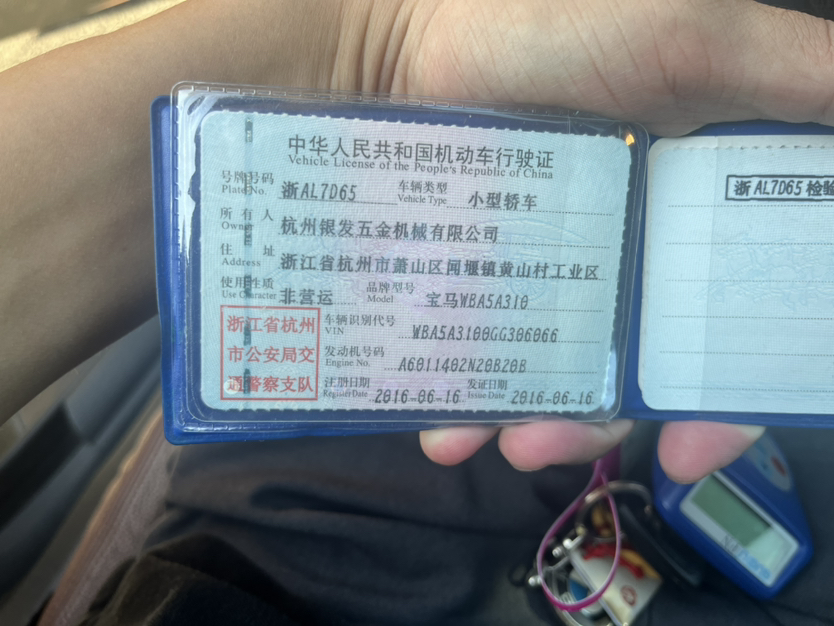 中华人民共和国机动车行驶证
Vehicle License of the People's Republic of China
号牌号码 浙AL7D65 车辆类型 小型轿车
Plate No. Vehicle Type
所有人 杭州银发五金机械有限公司
Owner
住址 浙江省杭州市萧山区闻堰镇黄山村工业区
Address
使用性质 非营运 品牌型号 宝马WBA5A310
Use Character Model
浙江省杭州
市公安局交
通警察支队
车辆识别代号 WBA5A3100GG306066
VIN
发动机号码 A6011402N20B20B
Engine No.
注册日期 2016-06-16 发证日期 2016-06-16
Register Date Issue Date
浙AL7D65 检验